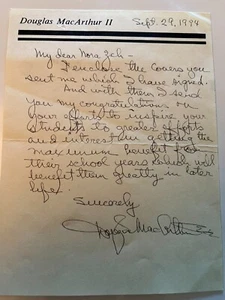 Douglas MacArthur II
Sept. 29, 1994
My dear Nora
I enclose the covers you
sent me which I have signed.
And with them I send
you my congratulations on
your efforts to inspire your
students to greater efforts
and interest in getting the
maximum benefit from
their school years which will
benefit them greatly in later
life.
Sincerely
Douglas MacArthur